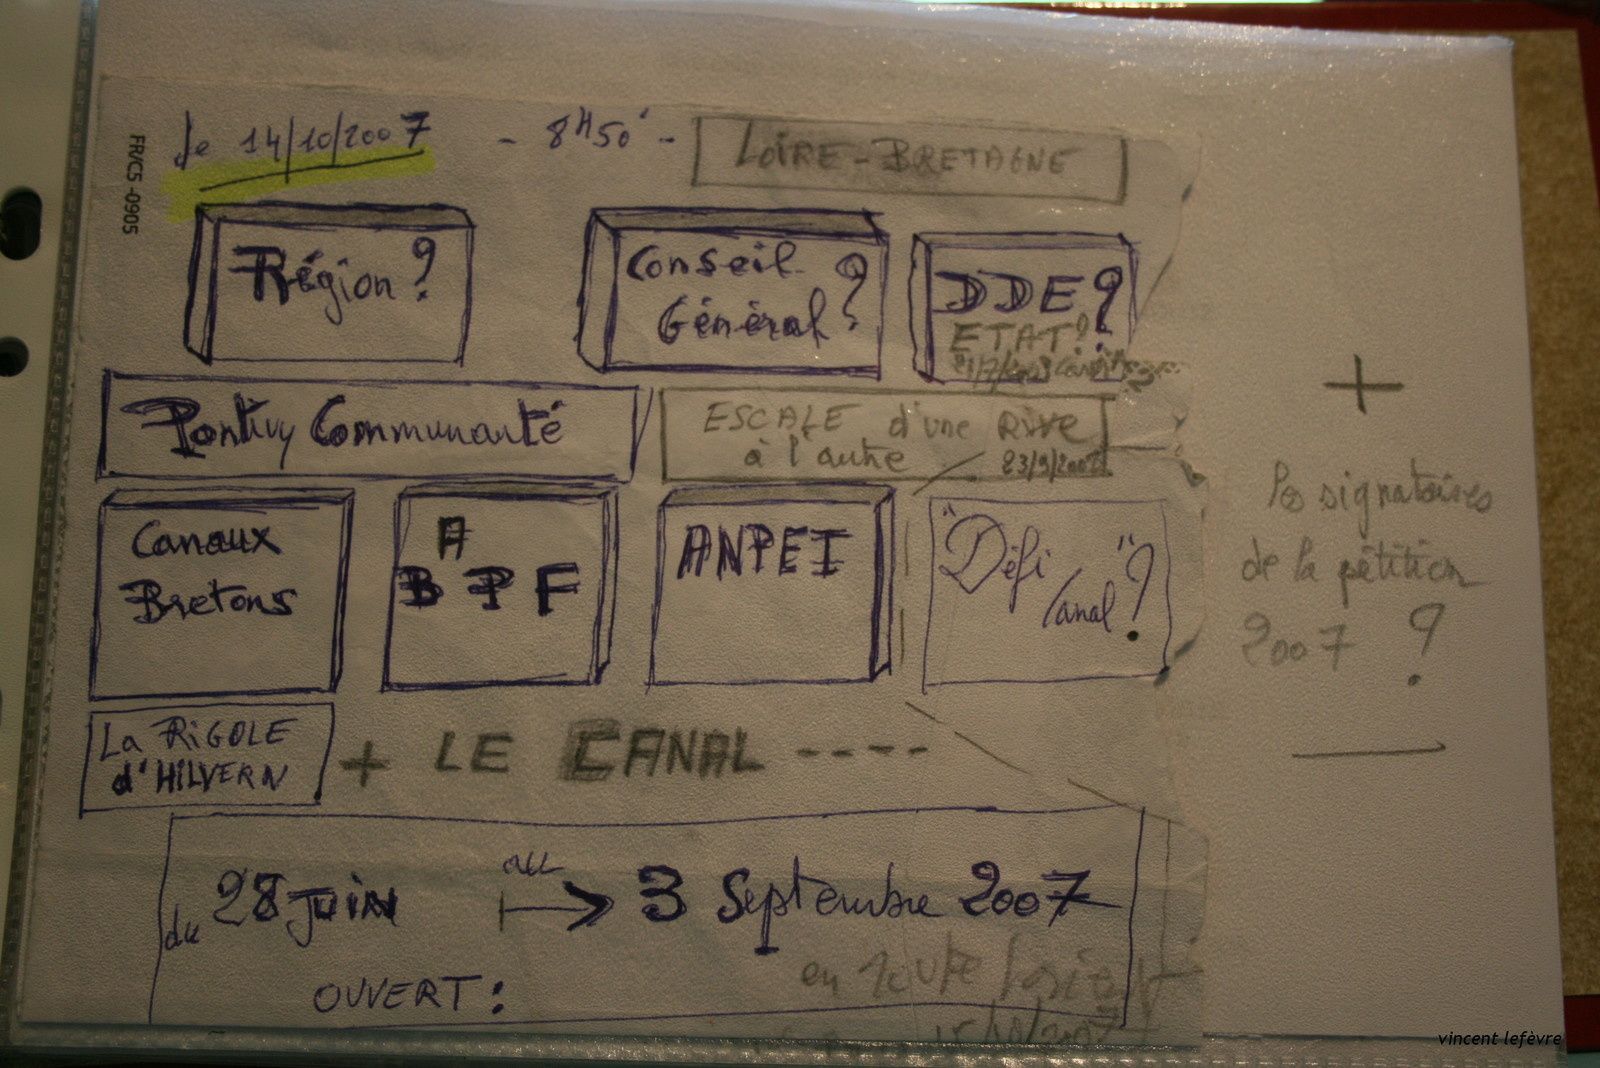 FR/CS -0905
le 14/10/2007 - 8H50' -
LOIRE-BRETAGNE
Région ?
Conseil
Général ?
DDE ?
ETAT ?
Pontivy Communauté
ESCALE d'une Rive
à l'autre 23/9/2007
Canaux
Bretons
A
B P F
ANPEI
"Défi
Canal" ?
+
les signataires
de la pétition
2007 ?
La RiGOLE
d'HILVERN
+ LE CANAL ----
du 28 Juin au 3 Septembre 2007
OUVERT :
en route
15/10/2007
vincent lefèvre